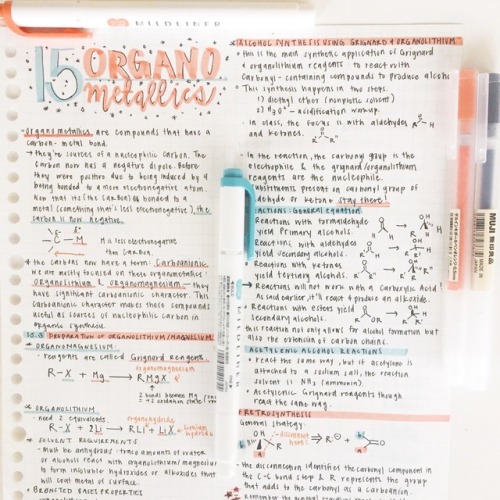 MILDLINER
15 ORGANO
metallics
Organometallics are compounds that have a
carbon-metal bond.
• they're sources of a nucleophilic carbon. The
carbon now has a negative dipole. Before
they were positive due to being induced by a
being bonded to a more electronegative atom.
Now that its (the carbon) is bonded to a
metal (something that's less electronegative), the
carbon is now negative.
C – M
M is less electronegative
than Carbon.
• the carbons now have a term: Carbanionic.
We are mostly focused on these organometallics:
organolithium & organomagnesium – they
have significant carbanionic character. This
carbanionic character makes these compounds
useful as sources of nucleophilic carbon in
organic synthesis.
15.3 PREPARATION OF ORGANOLITHIUM/MAGNESIUM
* ORGANOMAGNESIUM:
• reagents are called Grignard reagents.
organomagnesium
R-X + Mg → RMgX
2 bonds because Mg
* ORGANOLITHIUM:
• need 2 equivalents.
R-X + 2Li → RLi + LiX
* SOLVENT REQUIREMENTS
• Must be anhydrous: trace amounts of water
or alcohols react with organolithium/magnesium
to form insoluble hydroxides or alkoxides that
will coat metal of surface.
* BRØNSTED BASES PROPERTIES
* ALCOHOL SYNTHESIS USING GRIGNARD & ORGANOLITHIUM
• this is the main synthetic application of Grignard
& organolithium reagents to react with
carbonyl-containing compounds to produce alcoho
• This synthesis happens in two steps.
1) diethyl ether (nonprotic solvent)
2) H3O+ – acidification workup.
• in class, the focus is with aldehydes
and ketones.
• In the reaction, the carbonyl group is the
electrophile & the grignard/organolithium
reagents are the nucleophile.
substituents present on carbonyl group of
aldehyde or ketone stay there!
REACTIONS: General equation
Reactions with formaldehyde
yield primary alcohols.
Reactions with aldehydes
yield secondary alcohols.
Reactions with ketones
yield tertiary alcohols.
→ Reactions will not work with a Carboxylic Acid!
As said earlier it'll react & produce an alkoxide.
Reactions with esters yield
secondary alcohols.
• this reaction not only allows for alcohol formation but
also the extension of carbon chains.
ACETYLENIC ALCOHOL REACTIONS
• react the same way, but if acetylene is
attached to a sodium salt, the reaction
solvent is NH3 (ammonia).
• Acetylenic Grignard reagents though
react the same way.
RETROSYNTHESIS
General strategy:
disconnect here!
• the disconnection identifies the carbonyl component in
the C-C bond step & R represents the group
that adds to the carbonyl as a carbanion.
MUJI 無印良品